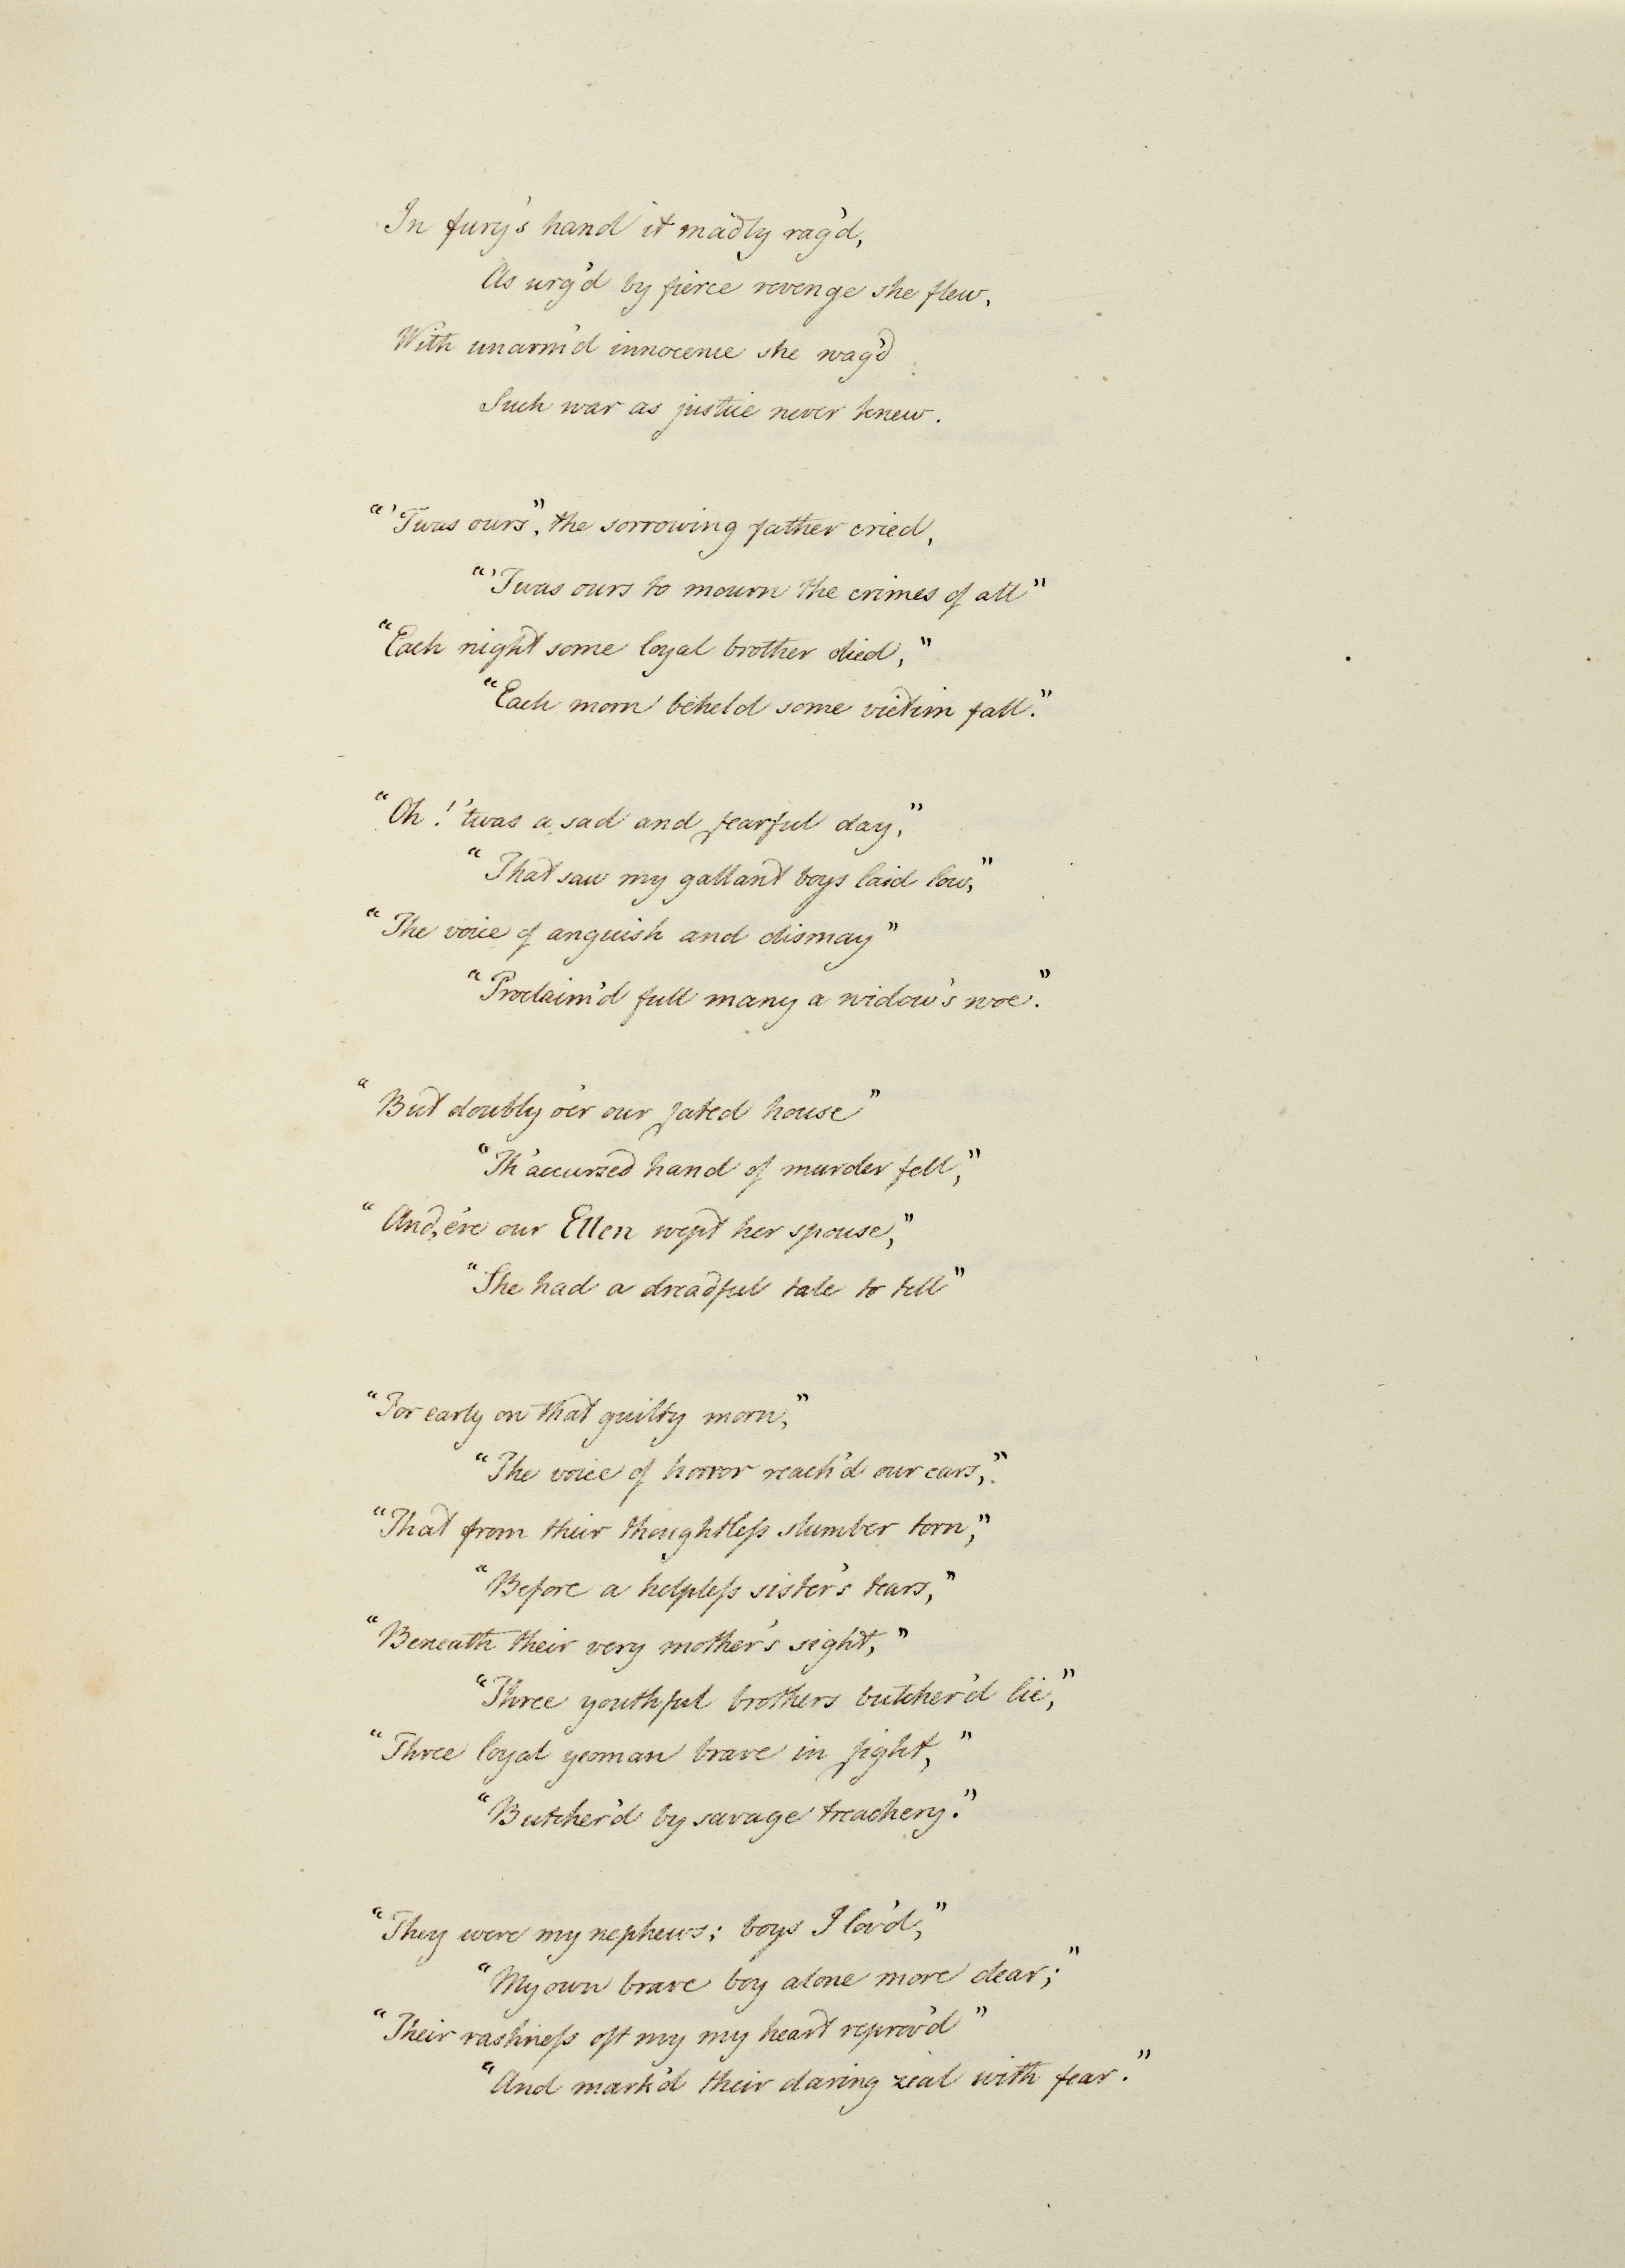 In fury's hand it madly rag'd,
As urg'd by fierce revenge she flew,
With unarm'd innocence she wag'd
Such war as justice never knew.
"'Twas ours", the sorrowing father cried,
"'Twas ours to mourn the crimes of all"
"Each night some loyal brother died,"
"Each morn beheld some victim fall."
"Oh! 'twas a sad and fearful day,"
"That saw my gallant boys laid low,"
"The voice of anguish and dismay"
"Proclaim'd full many a widow's woe."
"But doubly o'er our fated house"
"Th' accursed hand of murder fell,"
"And, e're our Ellen wept her spouse,"
"She had a dreadful tale to tell"
"For early on that guilty morn,"
"The voice of horror reach'd our ears,"
"That from their thoughtleſs slumber torn,"
"Before a helpleſs sister's tears,"
"Beneath their very mother's sight,"
"Three youthful brothers butcher'd lie,"
"Three loyal yeoman brave in fight,"
"Butcher'd by savage treachery."
"They were my nephews; boys I lov'd,"
"My own brave boy alone more dear;"
"Their rashneſs oft my my heart reprov'd"
"And mark'd their daring zeal with fear."